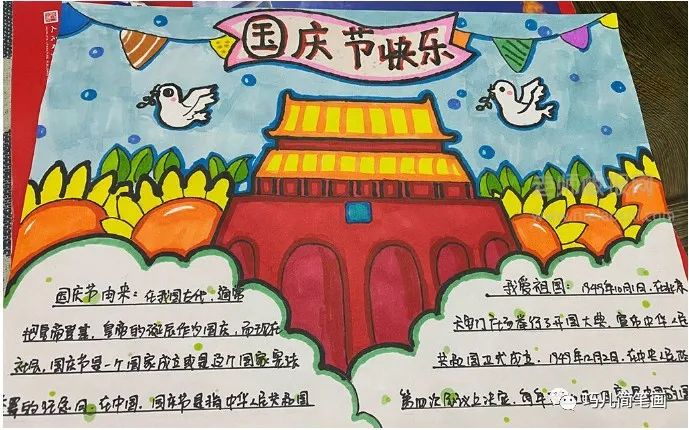 国庆节快乐
国庆节由来：在我国古代，通常
把皇帝登基、皇帝的诞辰作为国庆，而现在
社会，国庆节是一个国家成立或是这个国家宪法
的纪念日，在中国，国庆节是指中华人民共和国
我爱祖国：1949年10月1日，在北京
天安门广场举行了开国大典，宣布中华人民
共和国正式成立，1949年12月2日，在中央人民政
第四次会议上决定，每年
巧儿简笔画